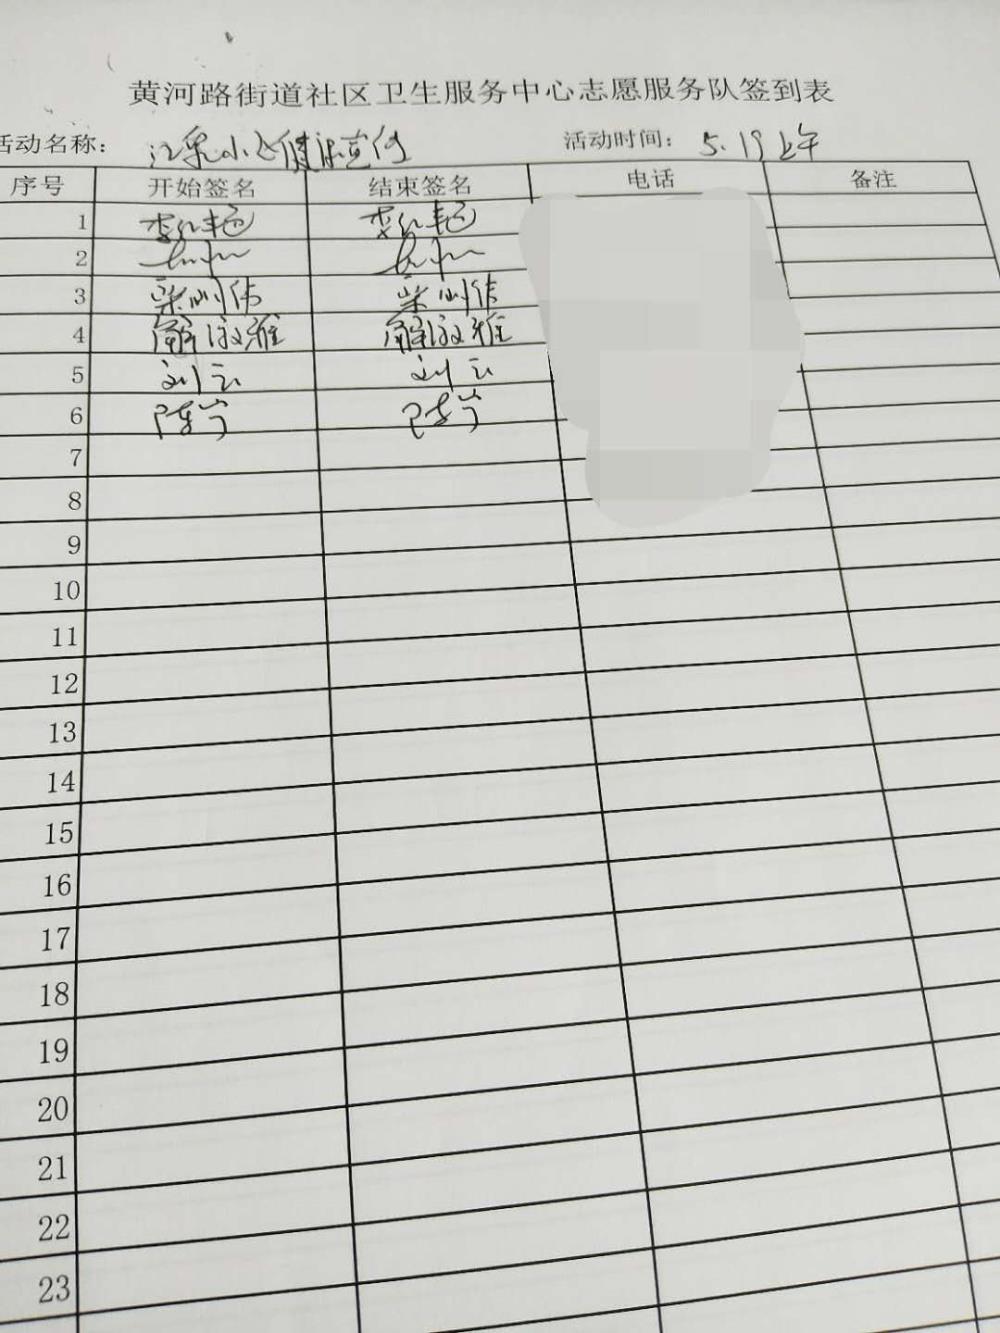 黄河路街道社区卫生服务中心志愿服务队签到表
活动名称： 小区健康宣传 活动时间： 5.19上午
序号 开始签名 结束签名 电话 备注
1 李红艳 李红艳
2
3 梁 伟 梁 伟
4 解淑雅 解淑雅
5 刘云 刘云
6 陈岑 陈岑
7
8
9
10
11
12
13
14
15
16
17
18
19
20
21
22
23